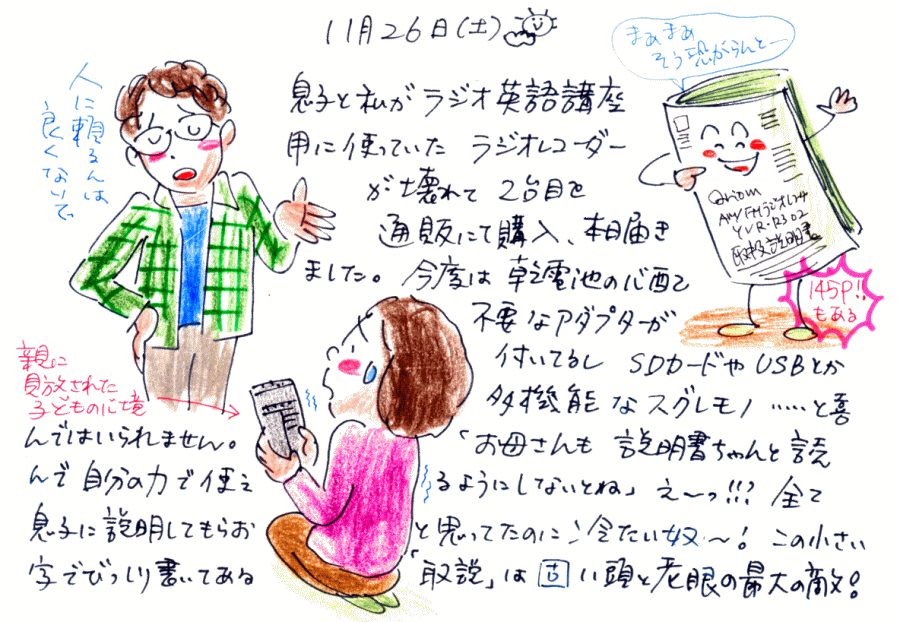 11月26日(土)
まあまあ
そう恐がらんと―
人に頼るんは
良くないで
息子と私がラジオ英語講座
用に使っていた ラジオレコーダー
が壊れて 2台目を
通販にて購入、本日届き
ました。今度は 乾電池の心配で
不要なアダプターが
付いてるし SDカードや USBとか
多機能なスグレモノ……と喜
んではいられません。「お母さんも 説明書ちゃんと読
んで 自分の力で使え るようにしないとね」え〜っ!!? 全て
息子に説明してもらお と思ってたのに!冷たい奴〜! この小さい
字でびっしり書いてある 「取説」は 古い頭と老眼の最大の敵!
親に
見放された
子どもの心境
Qriom
AM/FMラジオレコーダー
YVR-R302
取扱説明書
145P!!
もある